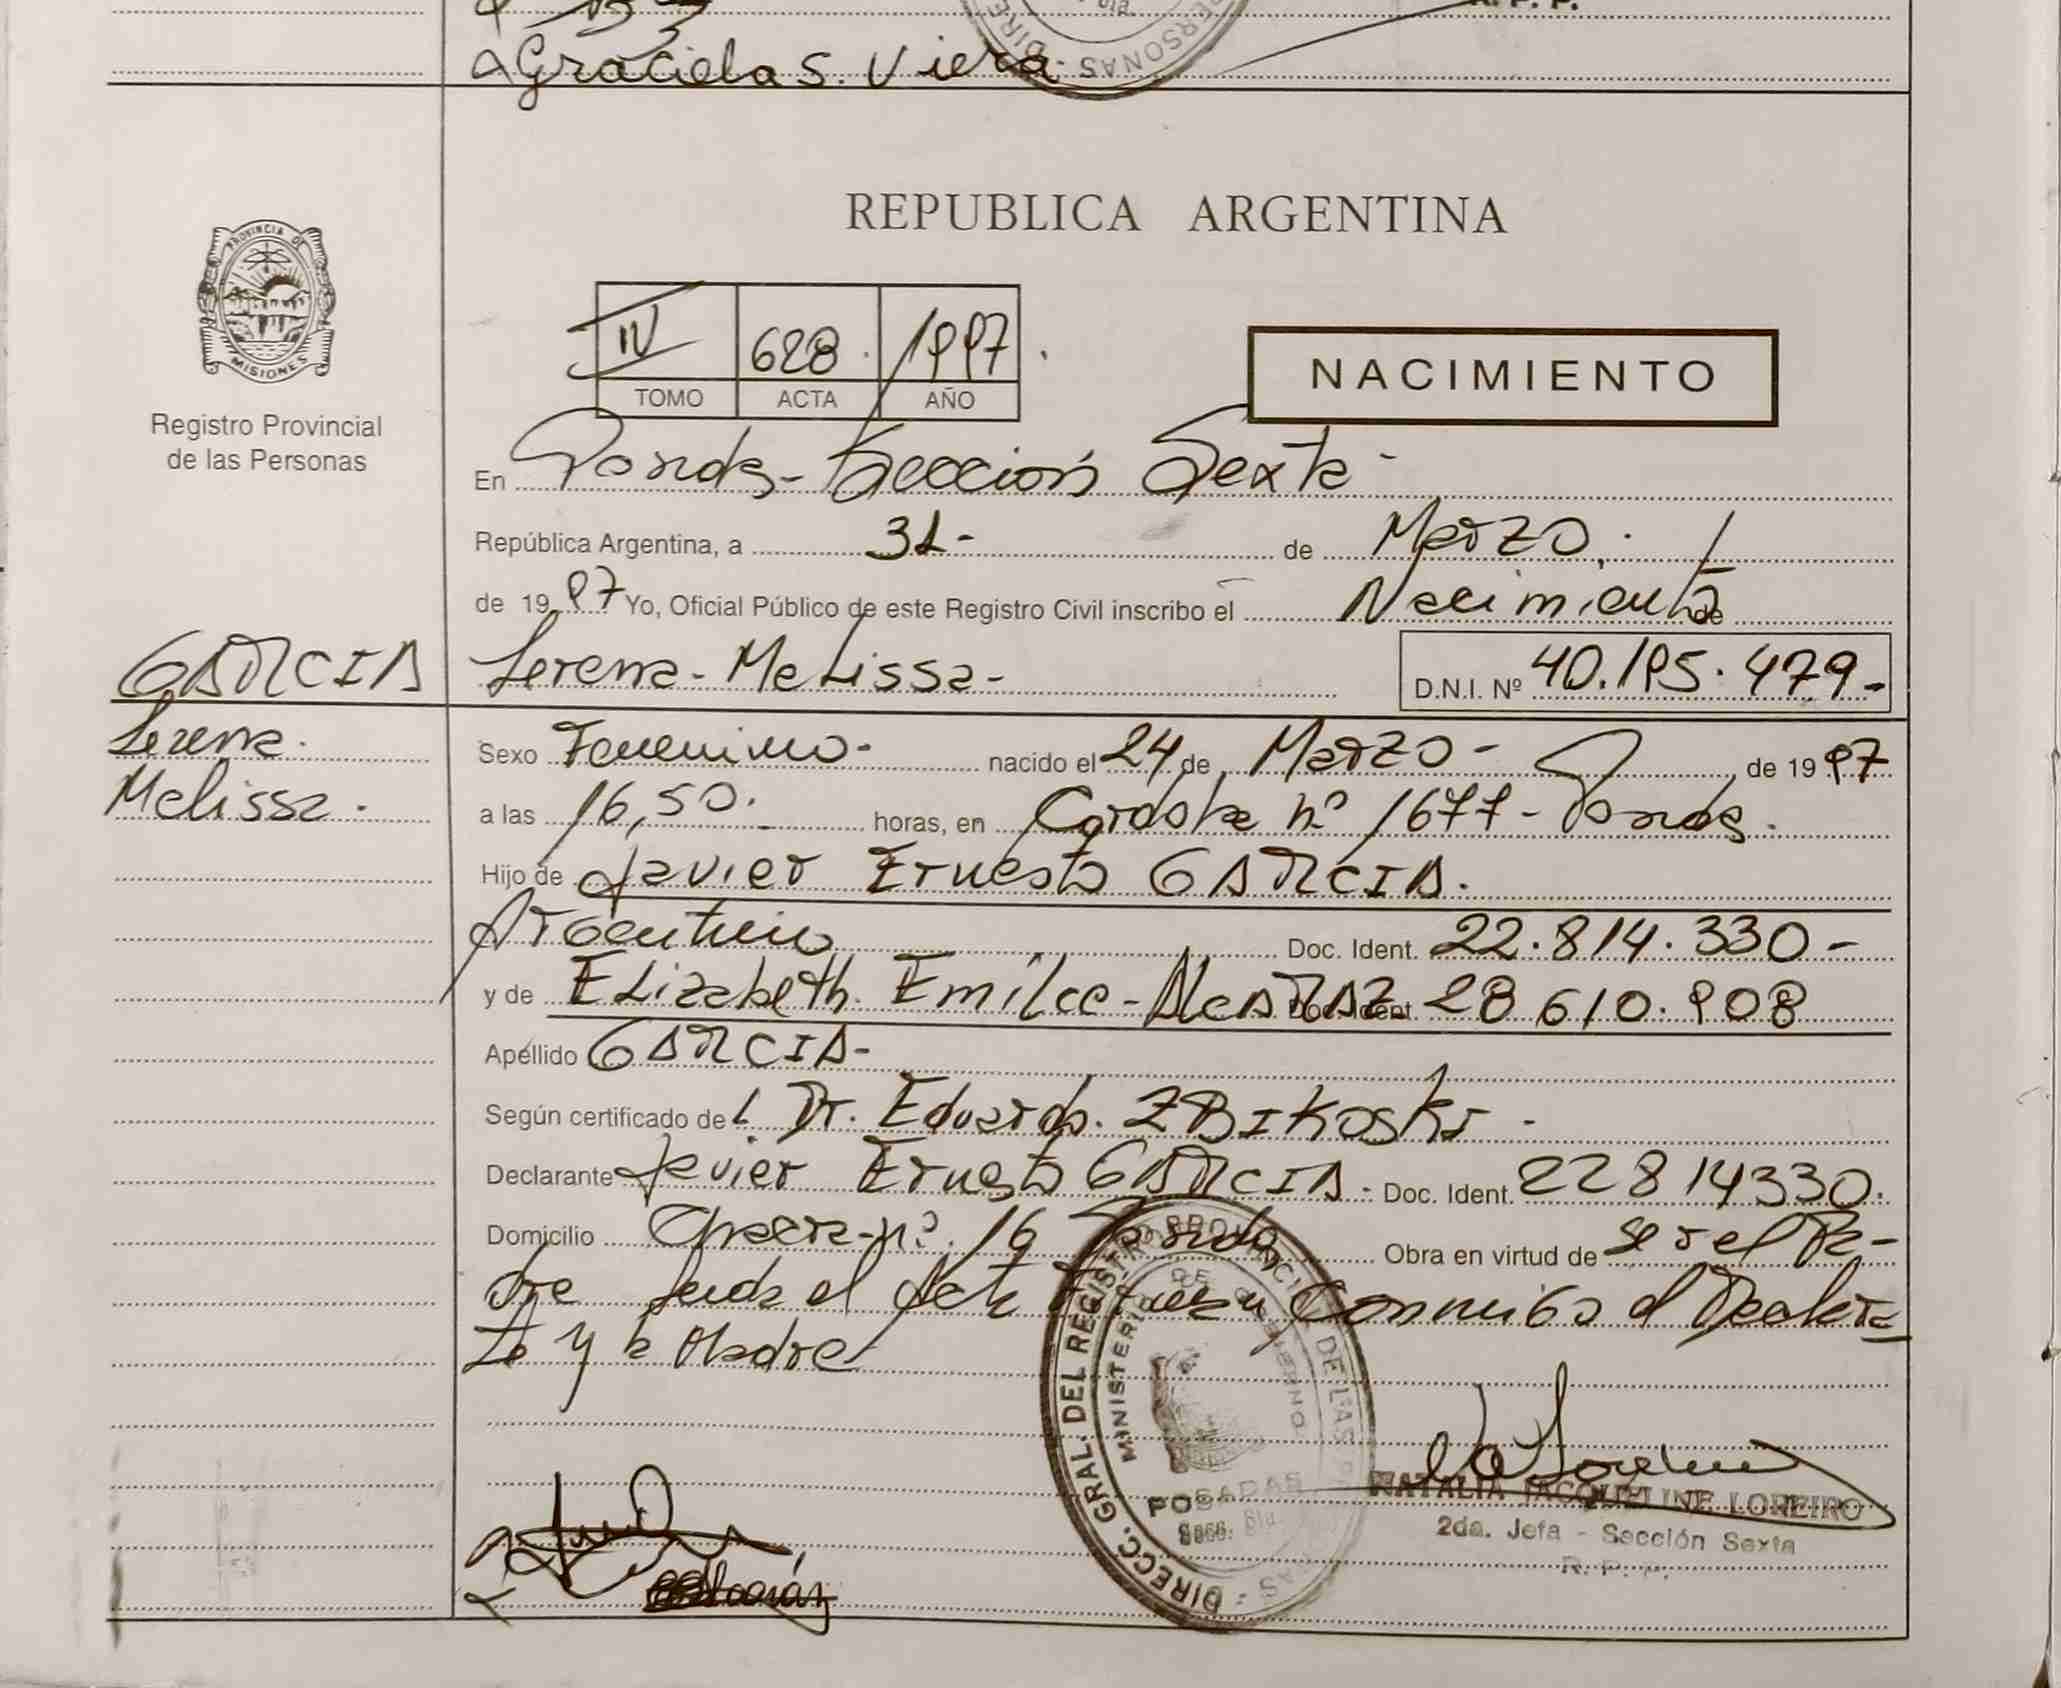 Graciela S. Viera
REPUBLICA ARGENTINA
PROVINCIA DE MISIONES
Registro Provincial
de las Personas
IV 628 1997
TOMO ACTA AÑO
NACIMIENTO
En Posadas - Sección Sexta -
República Argentina, a 31 - de Marzo.
de 1997 Yo, Oficial Público de este Registro Civil inscribo el Nacimiento de
GARCIA Serena - Melissa - D.N.I. Nº 40.195.479 -
Serena
Melissa.
Sexo Femenino - nacido el 24 de Marzo - de 1997
a las 16,50. horas, en Cordoba nº 1677 - Posadas.
Hijo de Javier Ernesto GARCIA.
Argentino Doc. Ident. 22.814.330 -
y de Elizabeth Emilce - ALCARAZ Doc. Ident. 28 610.908
Apellido GARCIA -
Según certificado de Dr. Eduardo ZBIKOSKI -
Declarante Javier Ernesto GARCIA - Doc. Ident. 22814330.
Domicilio Chacra nº. 16 Posadas Obra en virtud de ser el Pa-
dre Leida el Acta Firman Conmigo el Declara
te y la Madre
DIRECC. GRAL. DEL REGISTRO PROVINCIAL DE LAS PERSONAS
MINISTERIO DE GOBIERNO
POSADAS
Secc. 6ta.
NATALIA JACQUELINE LOREIRO
2da. Jefa - Sección Sexta
R. P. P.